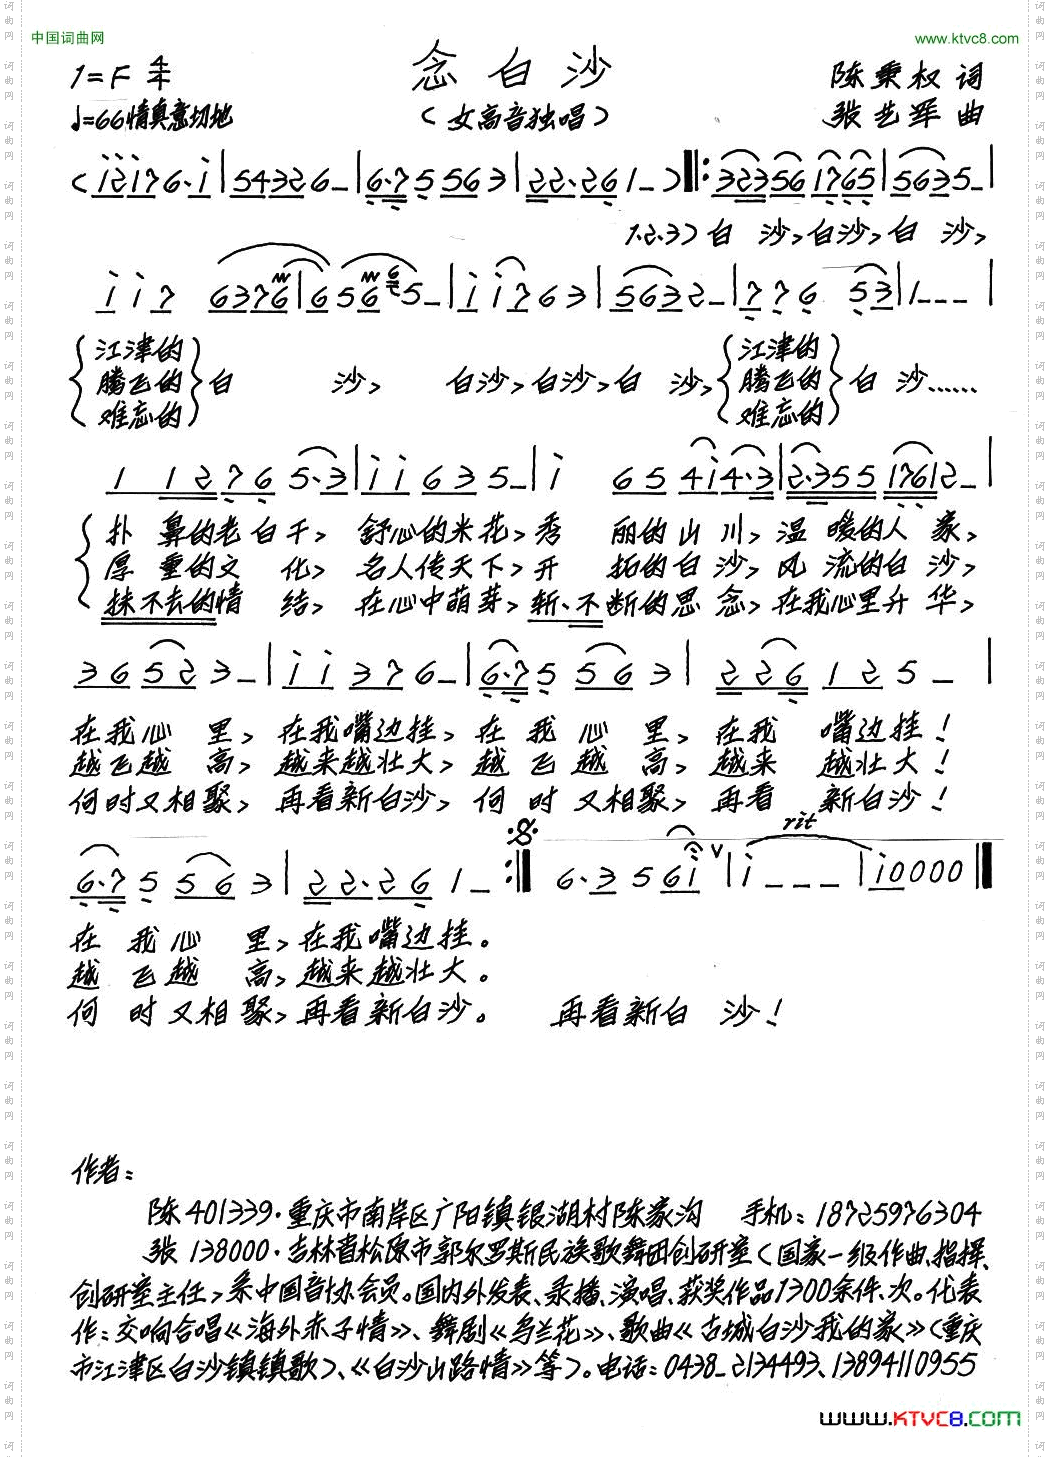 中国词曲网
www.ktvc8.com
念白沙
1=F 4/4
陈秉权 词
♩=66 情真意切地
（女高音独唱）
张艺军 曲
(i2i76·i|54326_|6·75563|22·261_)‖:32356 1765|5635_|
1.2.3)白 沙,白沙,白 沙,
i i 7 6376|656 65_|i i763|5632_|776 53|1___|
江津的 江津的
腾飞的 白 沙, 白沙,白沙,白 沙, 腾飞的 白 沙……
难忘的 难忘的
1 1276 5·3|ii635_|i 65 4i4·3|2·355 17612_|
扑 鼻的老白干, 舒心的米花,秀 丽的山川,温 暖的人 家,
厚 重的文 化, 名人传天下,开 拓的白沙,风 流的白沙,
抹不去的情 结, 在心中萌芽,斩、不断的思念,在我心里升 华,
36523_|ii376_|6·75 563|226 125_|
在我心 里, 在我嘴边挂, 在 我 心 里, 在我 嘴边挂!
越飞越 高, 越来越壮大, 越 飞 越 高, 越来 越壮大!
何时又相聚, 再看新白沙, 何 时 又相聚, 再看 新白沙!
rit
6·75 563|22·26 1_:‖6·3 56i|i___|i0000‖
在 我心 里,在我嘴边挂。
越 飞越 高,越来越壮大。
何 时又相聚,再看新白沙。 再看新白 沙!
作者:
陈401339·重庆市南岸区广阳镇银湖村陈家沟 手机:18725976304
张 138000·吉林省松原市郭尔罗斯民族歌舞团创研室(国家一级作曲、指挥、
创研室主任,系中国音协会员。国内外发表、录播、演唱、获奖作品1300余件、次。代表
作:交响合唱《海外赤子情》、舞剧《乌兰花》、歌曲《古城白沙我的家》(重庆
市江津区白沙镇镇歌)、《白沙山路情》等)。电话:0438_2134493、13894110955
www.KTVC8.com